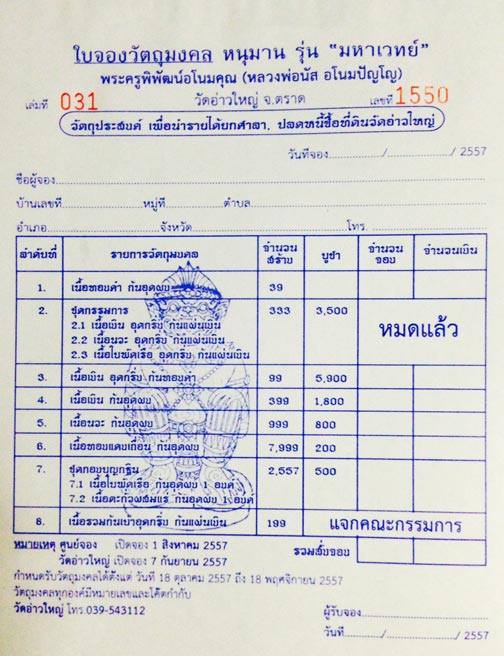 ใบจองวัตถุมงคล หนุมาน รุ่น "มหาเวทย์"
พระครูพิพัฒน์อโนมคุณ (หลวงพ่อนัส อโนมปัญโญ)
เล่มที่ 031 วัดอ่าวใหญ่ จ.ตราด เลขที่ 1550
วัตถุประสงค์ เพื่อนำรายได้ยกศาลา, ปลดหนี้ซื้อที่ดินวัดอ่าวใหญ่
วันที่จอง......../......../ 2557
ชื่อผู้จอง
บ้านเลขที่ หมู่ที่ ตำบล
อำเภอ จังหวัด โทร.
ลำดับที่ รายการวัตถุมงคล จำนวนสร้าง บูชา จำนวนจอง จำนวนเงิน
1. เนื้อทองคำ ก้นอุดผง 39
2. ชุดกรรมการ 333 3,500 หมดแล้ว
2.1 เนื้อเงิน อุดกริ่ง ก้นแผ่นเงิน
2.2 เนื้อนวะ อุดกริ่ง ก้นแผ่นเงิน
2.3 เนื้อใบพัดเรือ อุดกริ่ง ก้นแผ่นเงิน
3. เนื้อเงิน อุดกริ่ง ก้นทองคำ 99 5,900
4. เนื้อเงิน ก้นอุดผง 399 1,800
5. เนื้อนวะ ก้นอุดผง 999 800
6. เนื้อทองแดงเถื่อน ก้นอุดผง 7,999 200
7. ชุดกองบุญกฐิน 2,557 500
7.1 เนื้อใบพัดเรือ ก้นอุดผง 1 องค์
7.2 เนื้อตะกั่วผสมแร่ ก้นอุดผง 1 องค์
8. เนื้อรวมก้นเบ้าอุดกริ่ง ก้นแผ่นเงิน 199 แจกคณะกรรมการ
หมายเหตุ ศูนย์จอง เปิดจอง 1 สิงหาคม 2557 รวมสั่งจอง
วัดอ่าวใหญ่ เปิดจอง 7 กันยายน 2557
กำหนดรับวัตถุมงคลได้ตั้งแต่ วันที่ 18 ตุลาคม 2557 ถึง 18 พฤศจิกายน 2557
วัตถุมงคลทุกองค์มีหมายเลขและโค๊ตกำกับ
วัดอ่าวใหญ่ โทร.039-543112 ผู้รับจอง
วันที่......../......../ 2557